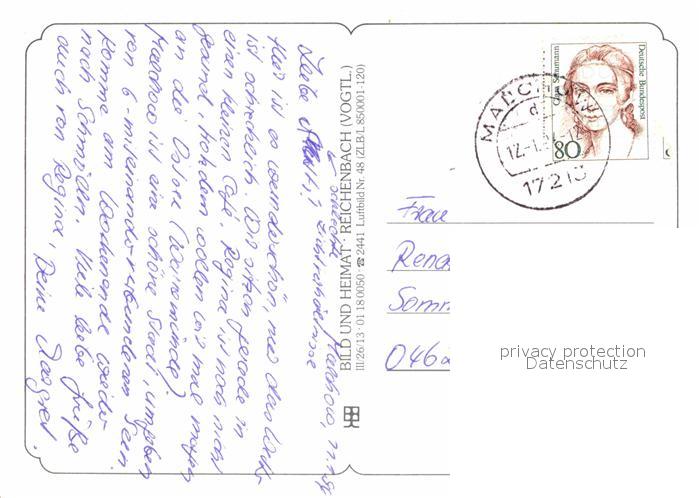 Malchow,
Liebe
Hier ist es wunderschön, nur das Wetter
ist schrecklich. Wir sitzen gerade in
einem kleinen Café. Regina ist noch nicht
gesund, trotzdem wollen wir mal morgen
an die Ostsee (Warnemünde)
Malchow ist eine schöne Stadt, umgeben
von 6 miteinander verbundenen Seen.
Komme am Wochenende wieder
nach Schmölln. Viele liebe Grüße
auch von Regina, Deine
BILD UND HEIMAT · REICHENBACH (VOGTL.)
III/26/13 · 01 18 0050 · ☎ 2441 Luftbild Nr. 48 (ZLB/L 850001-120)
Deutsche Bundespost
Clara Schumann
80
MALCHOW
d
17213
Frau
Rena
Somm
046
privacy protection
Datenschutz